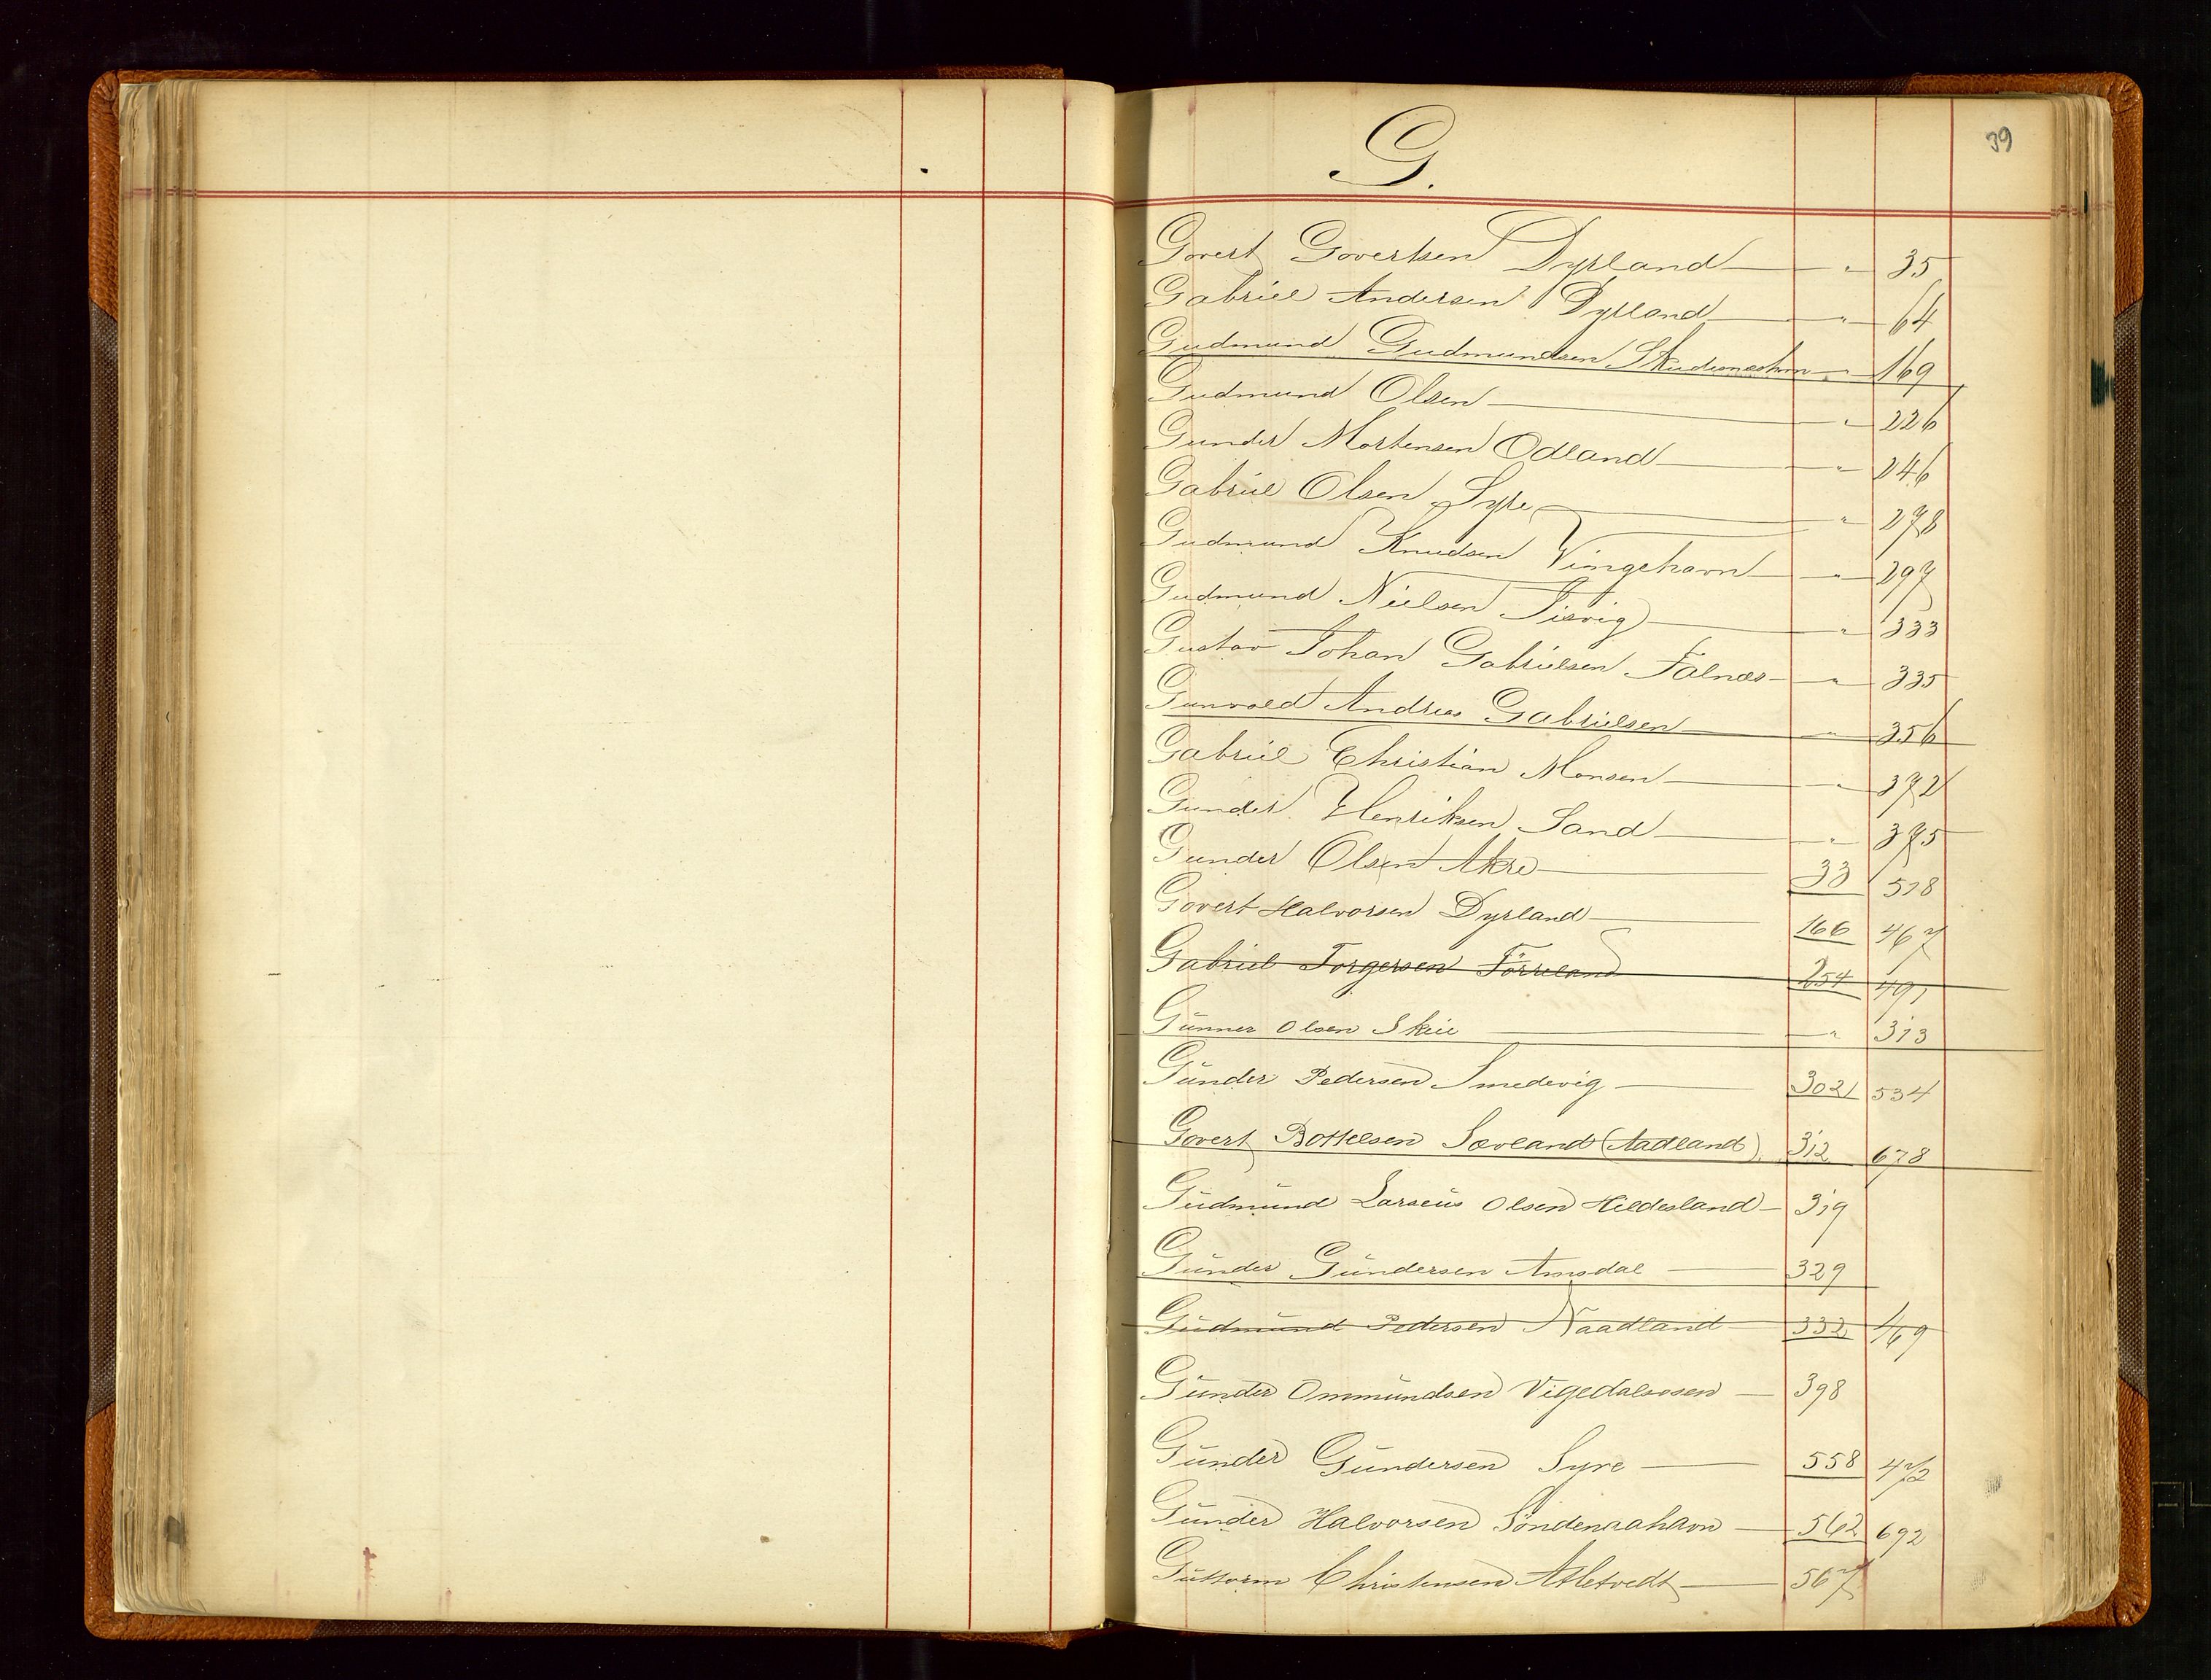 39
G.
Govert Govertsen Dyrland — " — 35
Gabriel Andersen Dyrland — " — 64
Gudmund Gudmundsen Skudeneshavn — " — 169
Gudmund Olsen — " — 226
Gunder Mortensen Odland — " — 246
Gabriel Olsen Syre — " — 278
Gudmund Knudsen Vingehavn — " — 297
Gudmund Nielsen Tisvig — " — 333
Gustav Johan Gabrielsen Falnæs — " — 335
Gunvald Andreas Gabrielsen — " — 356
Gabriel Christian Monsen — " — 372
Gunder Henriksen Sand — " — 375
Gunder Olsen Akre — 33 518
Govert Halvorsen Dyrland — 166 467
Gabriel Torgersen Förreland 254 491
Günner Olsen Skeie — " 313
Günder Pedersen Smedevig — 302 534
Govert Bottelsen Sævland (Aadland) 312 678
Güdmünd Larseüs Olsen Hildesland — 319
Günder Gündersen Amsdal — 329
Güdmünd Pedersen Naadland — 332 469
Günder Ommündsen Vigedalsosen — 398
Günder Gündersen Syre — 558 472
Günder Halvorsen Söndenaahavn — 562 692
Güttorm Christensen — 567